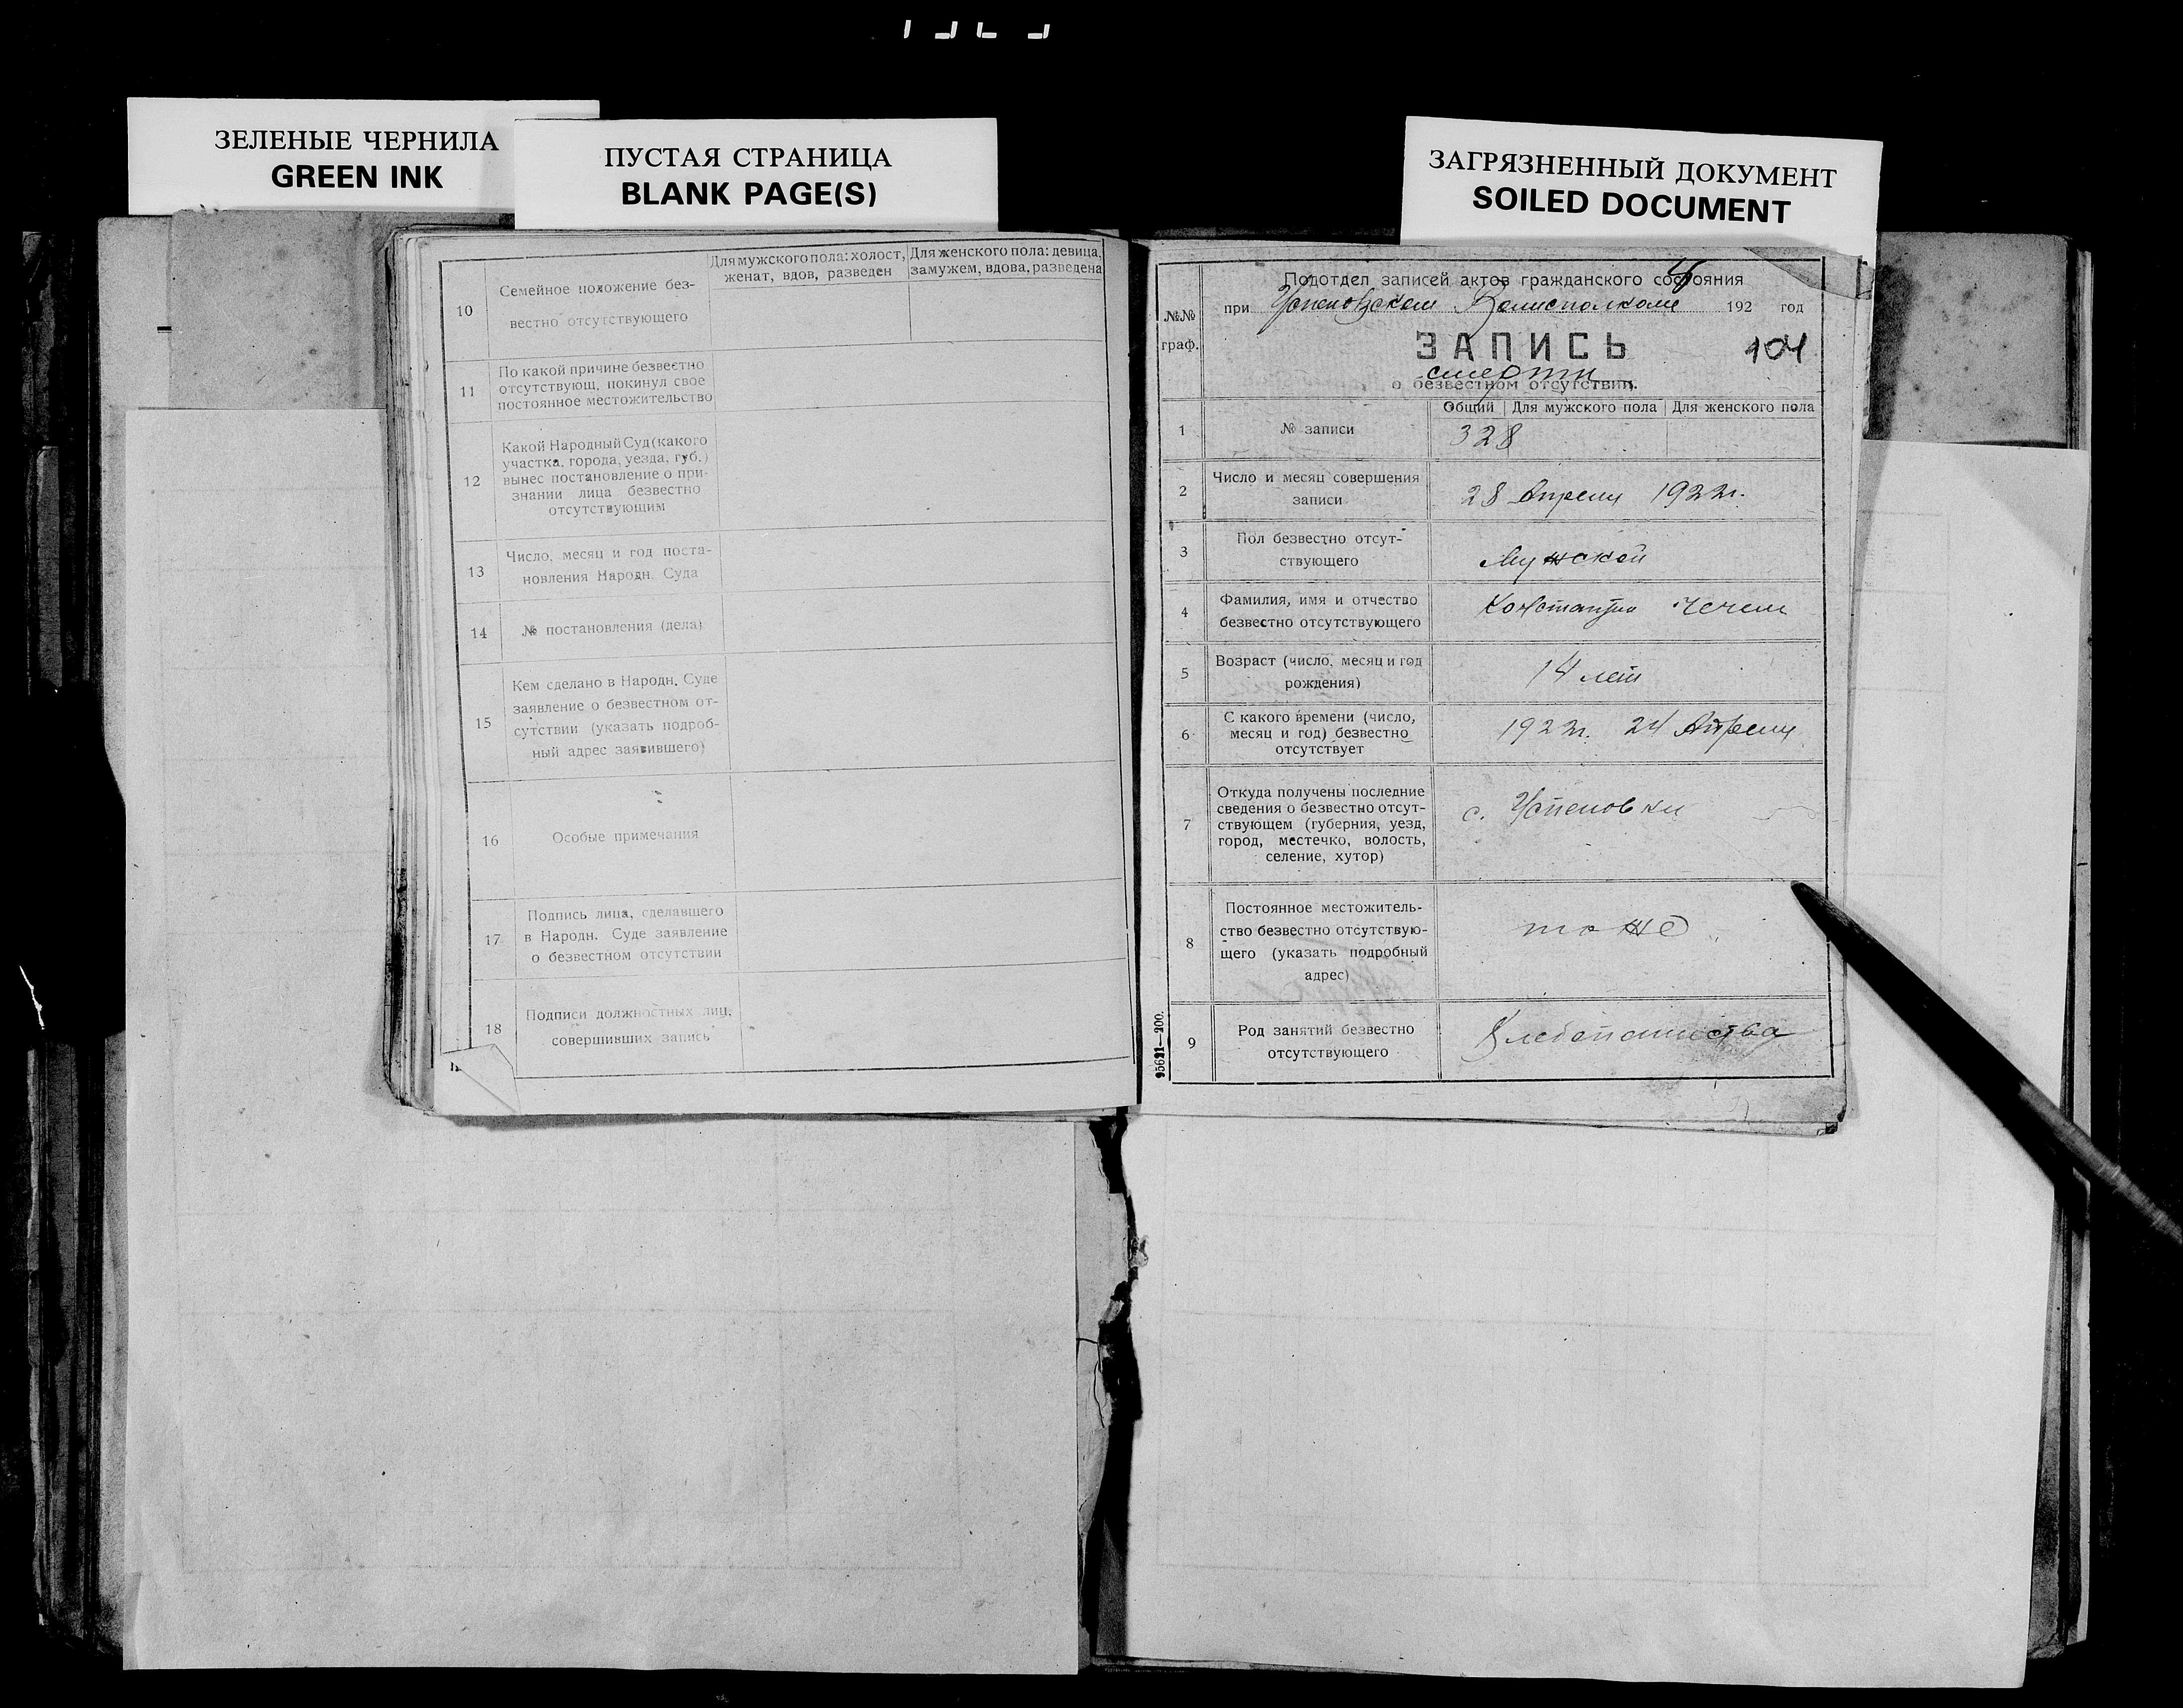 ЗЕЛЕНЫЕ ЧЕРНИЛА
GREEN INK
ПУСТАЯ СТРАНИЦА
BLANK PAGE(S)
ЗАГРЯЗНЕННЫЙ ДОКУМЕНТ
SOILED DOCUMENT
10
Семейное положение без-
вестно отсутствующего
Для мужского пола: холост,
женат, вдов, разведен
Для женского пола: девица,
замужем, вдова, разведена
11
По какой причине безвестно
отсутствующ. покинул свое
постоянное местожительство
12
Какой Народный Суд (какого
участка, города, уезда, губ.)
вынес постановление о при-
знании лица безвестно
отсутствующим
13
Число, месяц и год поста-
новления Народн. Суда
14
№ постановления (дела)
15
Кем сделано в Народн. Суде
заявление о безвестном от-
сутствии (указать подроб-
ный адрес заявившего)
16
Особые примечания
17
Подпись лица, сделавшего
в Народн. Суде заявление
о безвестном отсутствии
18
Подписи должностных лиц,
совершивших запись
№№
граф.
Подотдел записей актов гражданского состояния
при Успеновском Волисполкоме 192 год
ЗАПИСЬ
104
смерти
о безвестном отсутствии.
Общий Для мужского пола Для женского пола
1
№ записи
328
2
Число и месяц совершения
записи
28 Апреля 1922г.
3
Пол безвестно отсут-
ствующего
Мужской
4
Фамилия, имя и отчество
безвестно отсутствующего
Константин
5
Возраст (число, месяц и год
рождения)
14 лет
6
С какого времени (число,
месяц и год) безвестно
отсутствует
1922г. 24 Апреля
7
Откуда получены последние
сведения о безвестно отсут-
ствующем (губерния, уезд,
город, местечко, волость,
селение, хутор)
с. Успеновки
8
Постоянное местожитель-
ство безвестно отсутствую-
щего (указать подробный
адрес)
тоже
9
Род занятий безвестно
отсутствующего
Хлебопашества